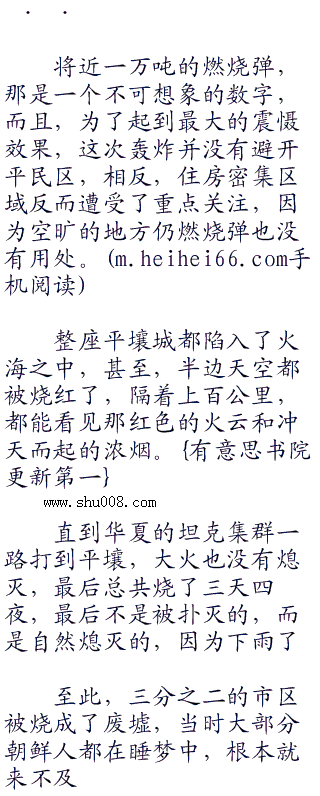 将近一万吨的燃烧弹，
那是一个不可想象的数字，
而且，为了起到最大的震慑
效果，这次轰炸并没有避开
平民区，相反，住房密集区
域反而遭受了重点关注，因
为空旷的地方仍燃烧弹也没
有用处。(m.heihei66.com手
机阅读)
整座平壤城都陷入了火
海之中，甚至，半边天空都
被烧红了，隔着上百公里，
都能看见那红色的火云和冲
天而起的浓烟。{有意思书院
更新第一}
www.shu008.com
直到华夏的坦克集群一
路打到平壤，大火也没有熄
灭，最后总共烧了三天四
夜，最后不是被扑灭的，而
是自然熄灭的，因为下雨了
至此，三分之二的市区
被烧成了废墟，当时大部分
朝鲜人都在睡梦中，根本就
来不及